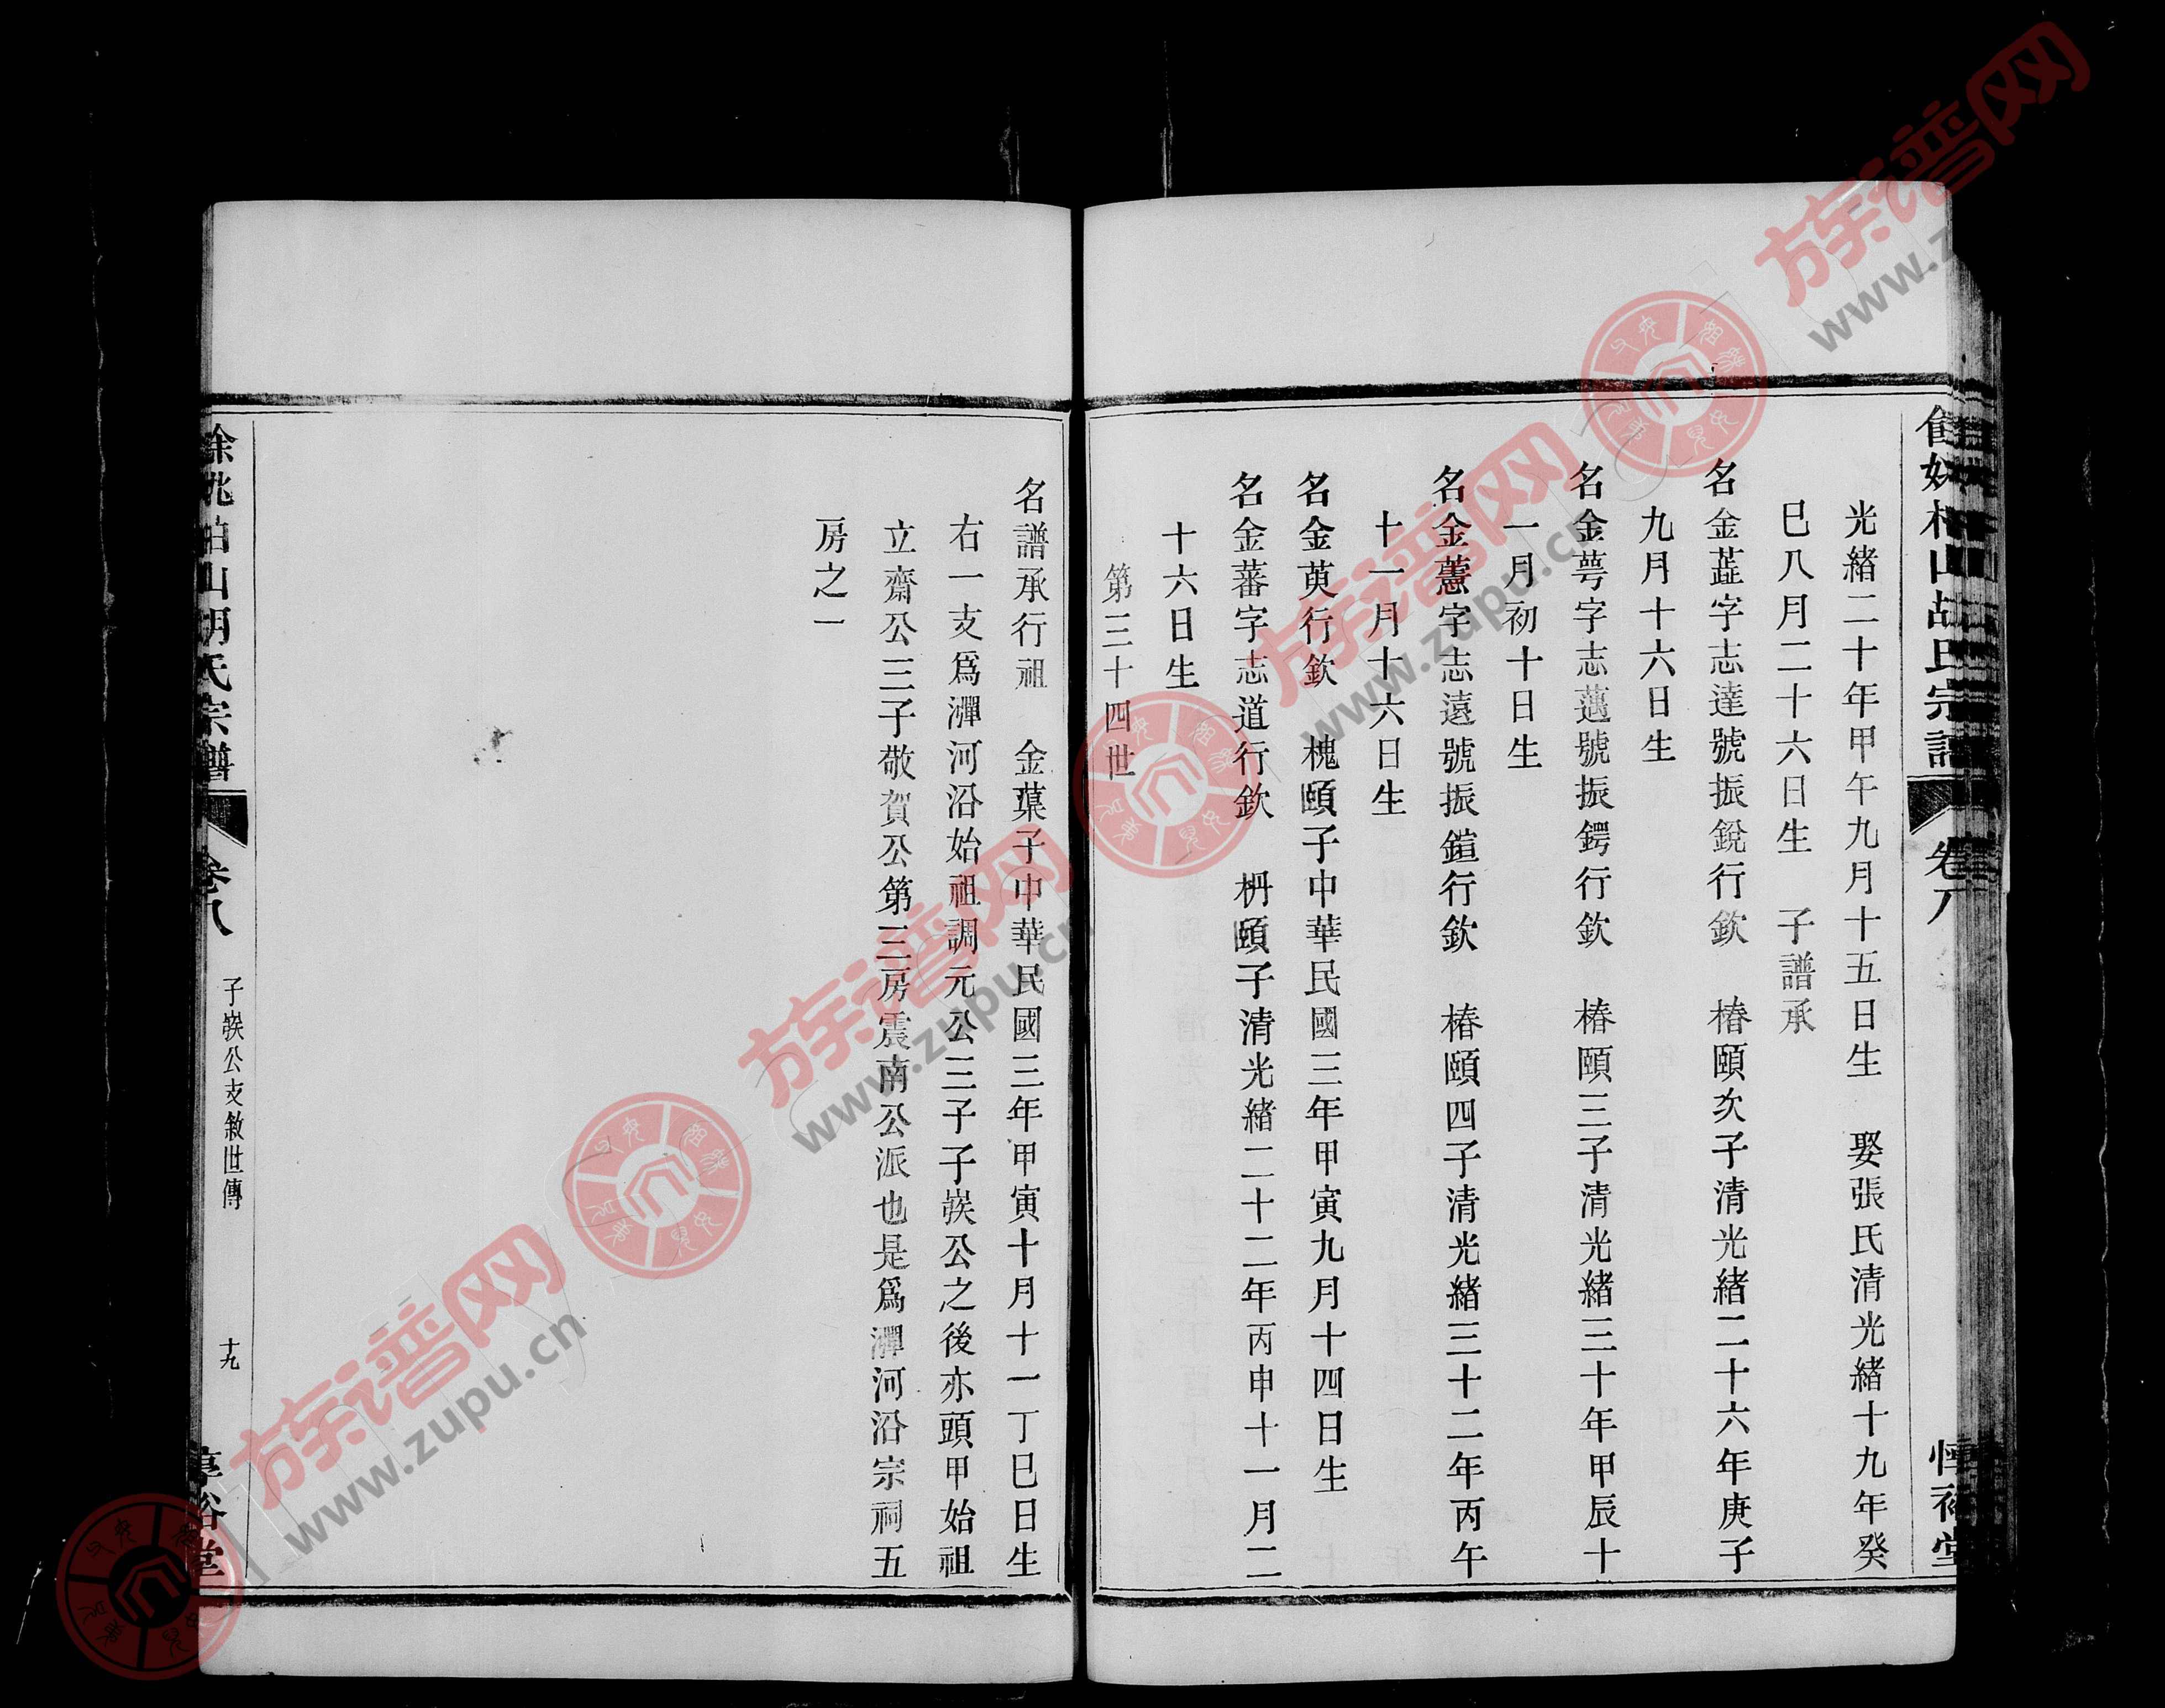 光緒二十年甲午九月十五日生 娶張氏清光緒十九年癸
巳八月二十六日生 子譜承
名金蕋字志達號振銳行欽 椿頤次子清光緒二十六年庚子
九月十六日生
名金萼字志薖號振鍔行欽 椿頤三子清光緒三十年甲辰十
一月初十日生
名金藼字志遠號振鍹行欽 椿頤四子清光緒三十二年丙午
十一月十六日生
名金萸行欽 槐頤子中華民國三年甲寅九月十四日生
名金蕃字志道行欽 枬頤子清光緒二十二年丙申十一月二
十六日生
第三十四世
名譜承行祖 金葉子中華民國三年甲寅十月十一丁巳日生
右一支爲潬河沿始祖調元公三子子裝公之後亦頭甲始祖
立齋公三子敬賀公第三房震南公派也是爲潬河沿宗祠五
房之一
山胡氏宗譜
卷八
公支敘世傳
十九
裕堂
族谱网
www.zupu.cn
族谱网
www.zupu.cn
族谱网
www.zupu.cn
族谱网
www.z